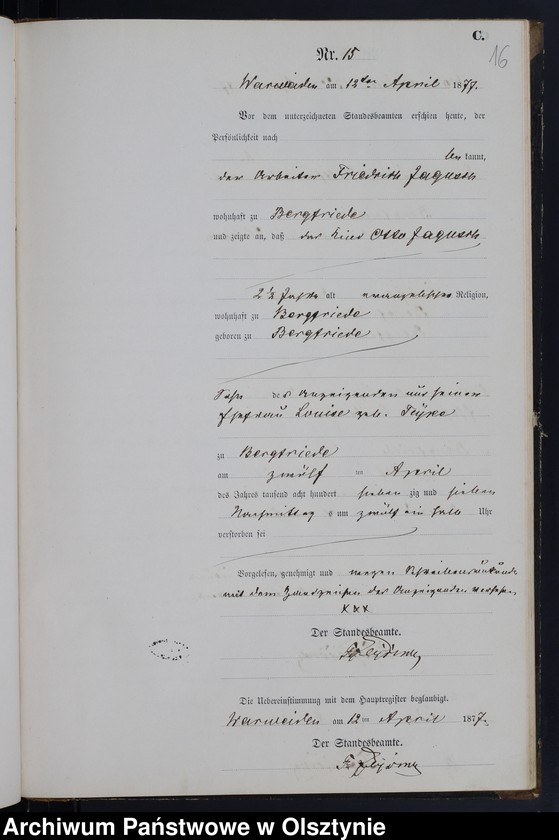 C.
16
Nr. 15
Warweiden am 12ten April 1877.
Vor dem unterzeichneten Standesbeamten erschien heute, der
Persönlichkeit nach
bekannt,
der Arbeiter Friedrich Jagusch
wohnhaft zu Bergfriede
und zeigte an, daß das Kind Otto Jagusch
2 1/2 Jahre alt evangelischer Religion,
wohnhaft zu Bergfriede
geboren zu Bergfriede
Sohn des Anzeigenden und seiner
Ehefrau Louise geb.
zu Bergfriede
am zwölf ten April
des Jahres tausend acht hundert sieben zig und sieben
Nachmittags um zwölf ein halb Uhr
verstorben sei
Vorgelesen, genehmigt und wegen Schreibensunkunde
mit dem Handzeichen des Anzeigenden versehen
xxx
Der Standesbeamte.
Die Uebereinstimmung mit dem Hauptregister beglaubigt.
Warweiden am 12ten April 1877.
Der Standesbeamte.
Archiwum Państwowe w Olsztynie